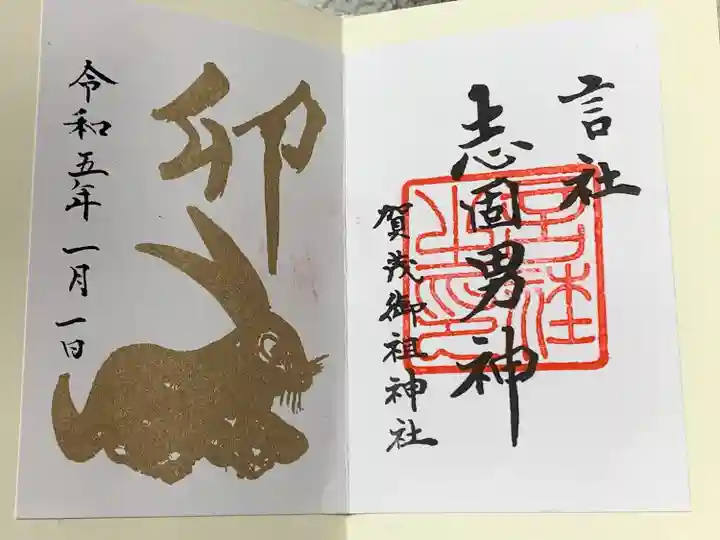 言社
志固男神
賀茂御祖神社
言社之印
卯
令和五年一月一日